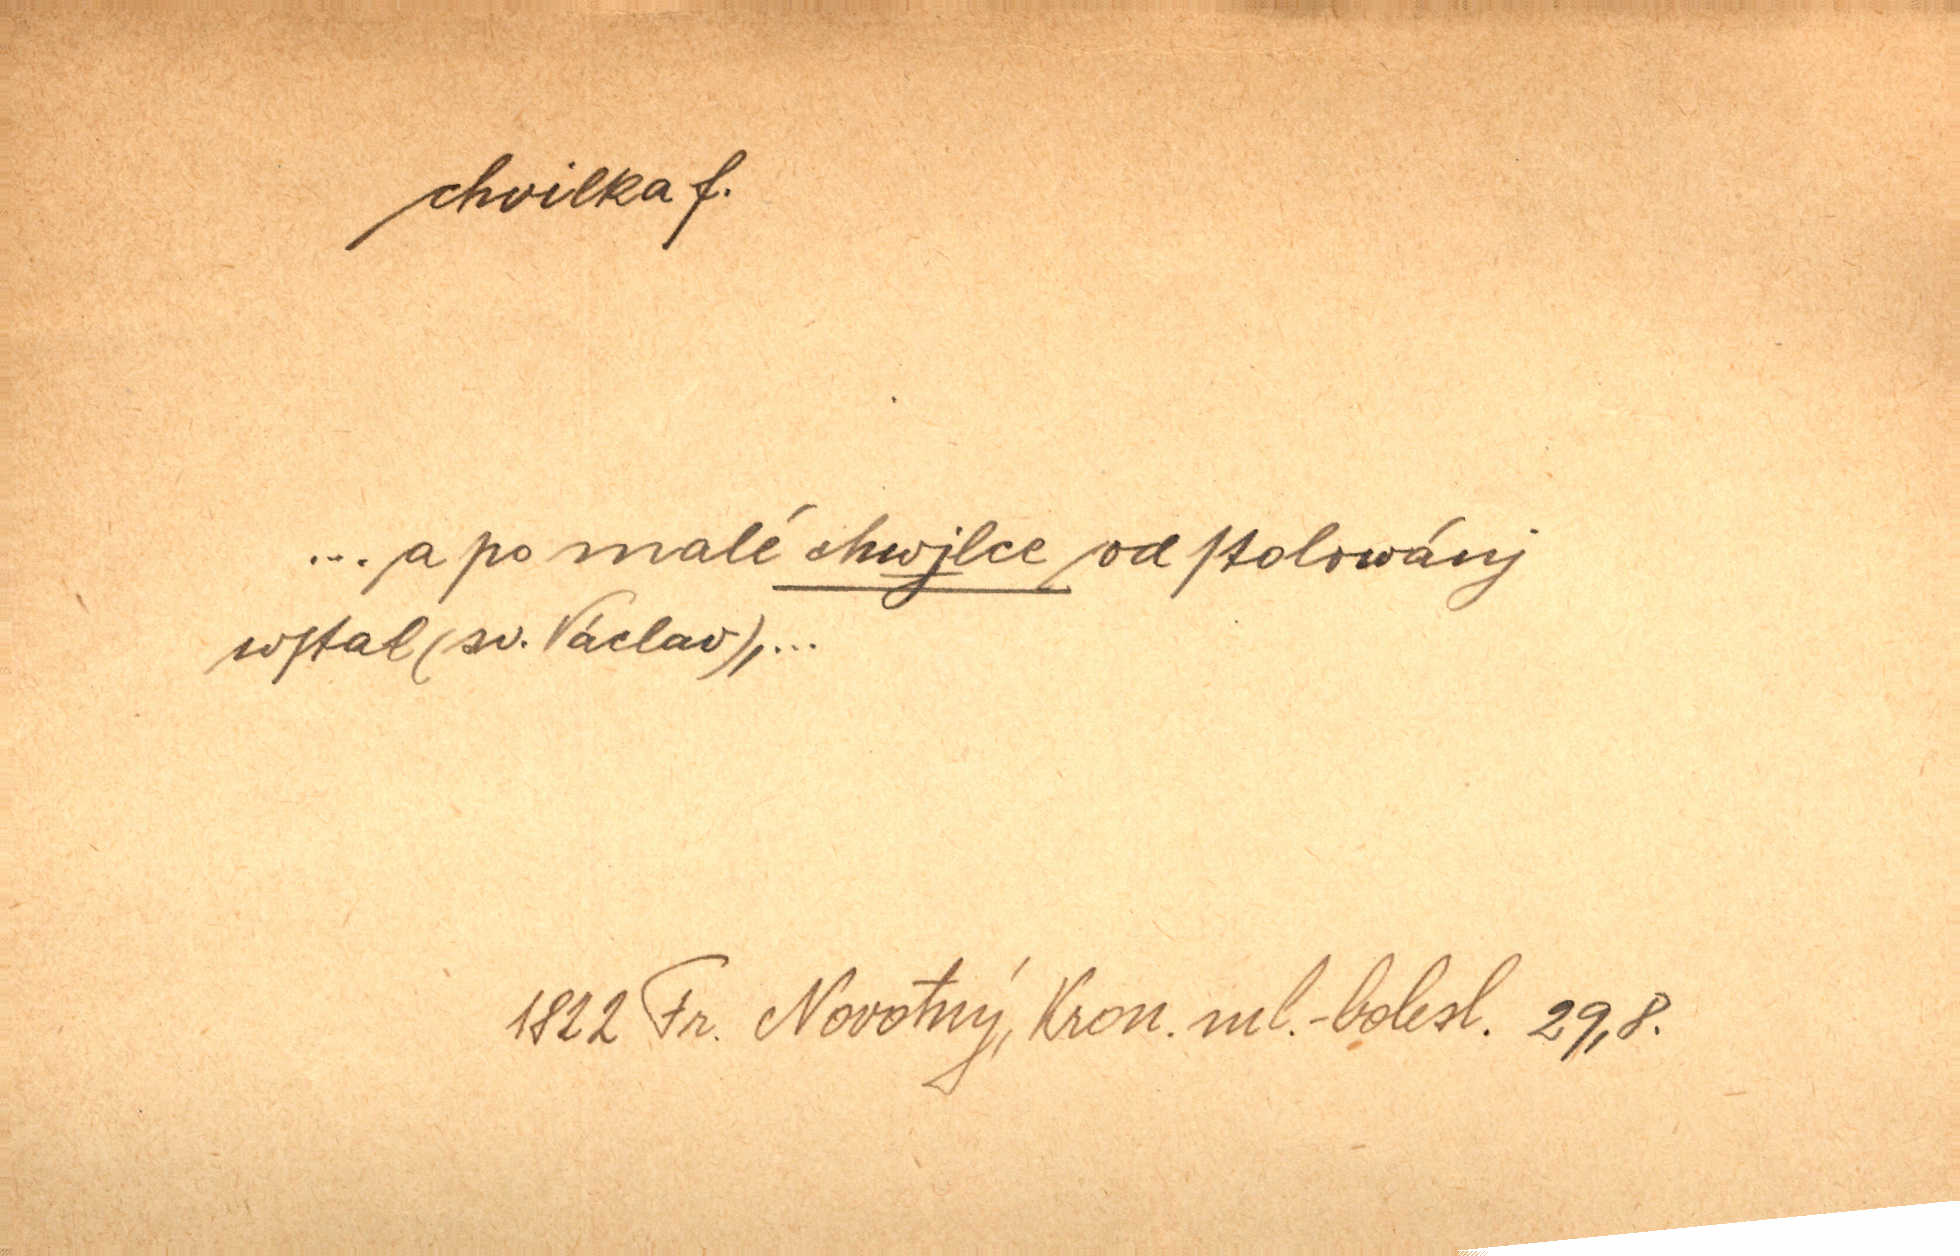 chvilka f.
... a po malé chwjlce od ſtolowánj
wſtal (sv. Václav),...
1822 Fr. Novotný, Kron. ml.-bolesl. 29,8.